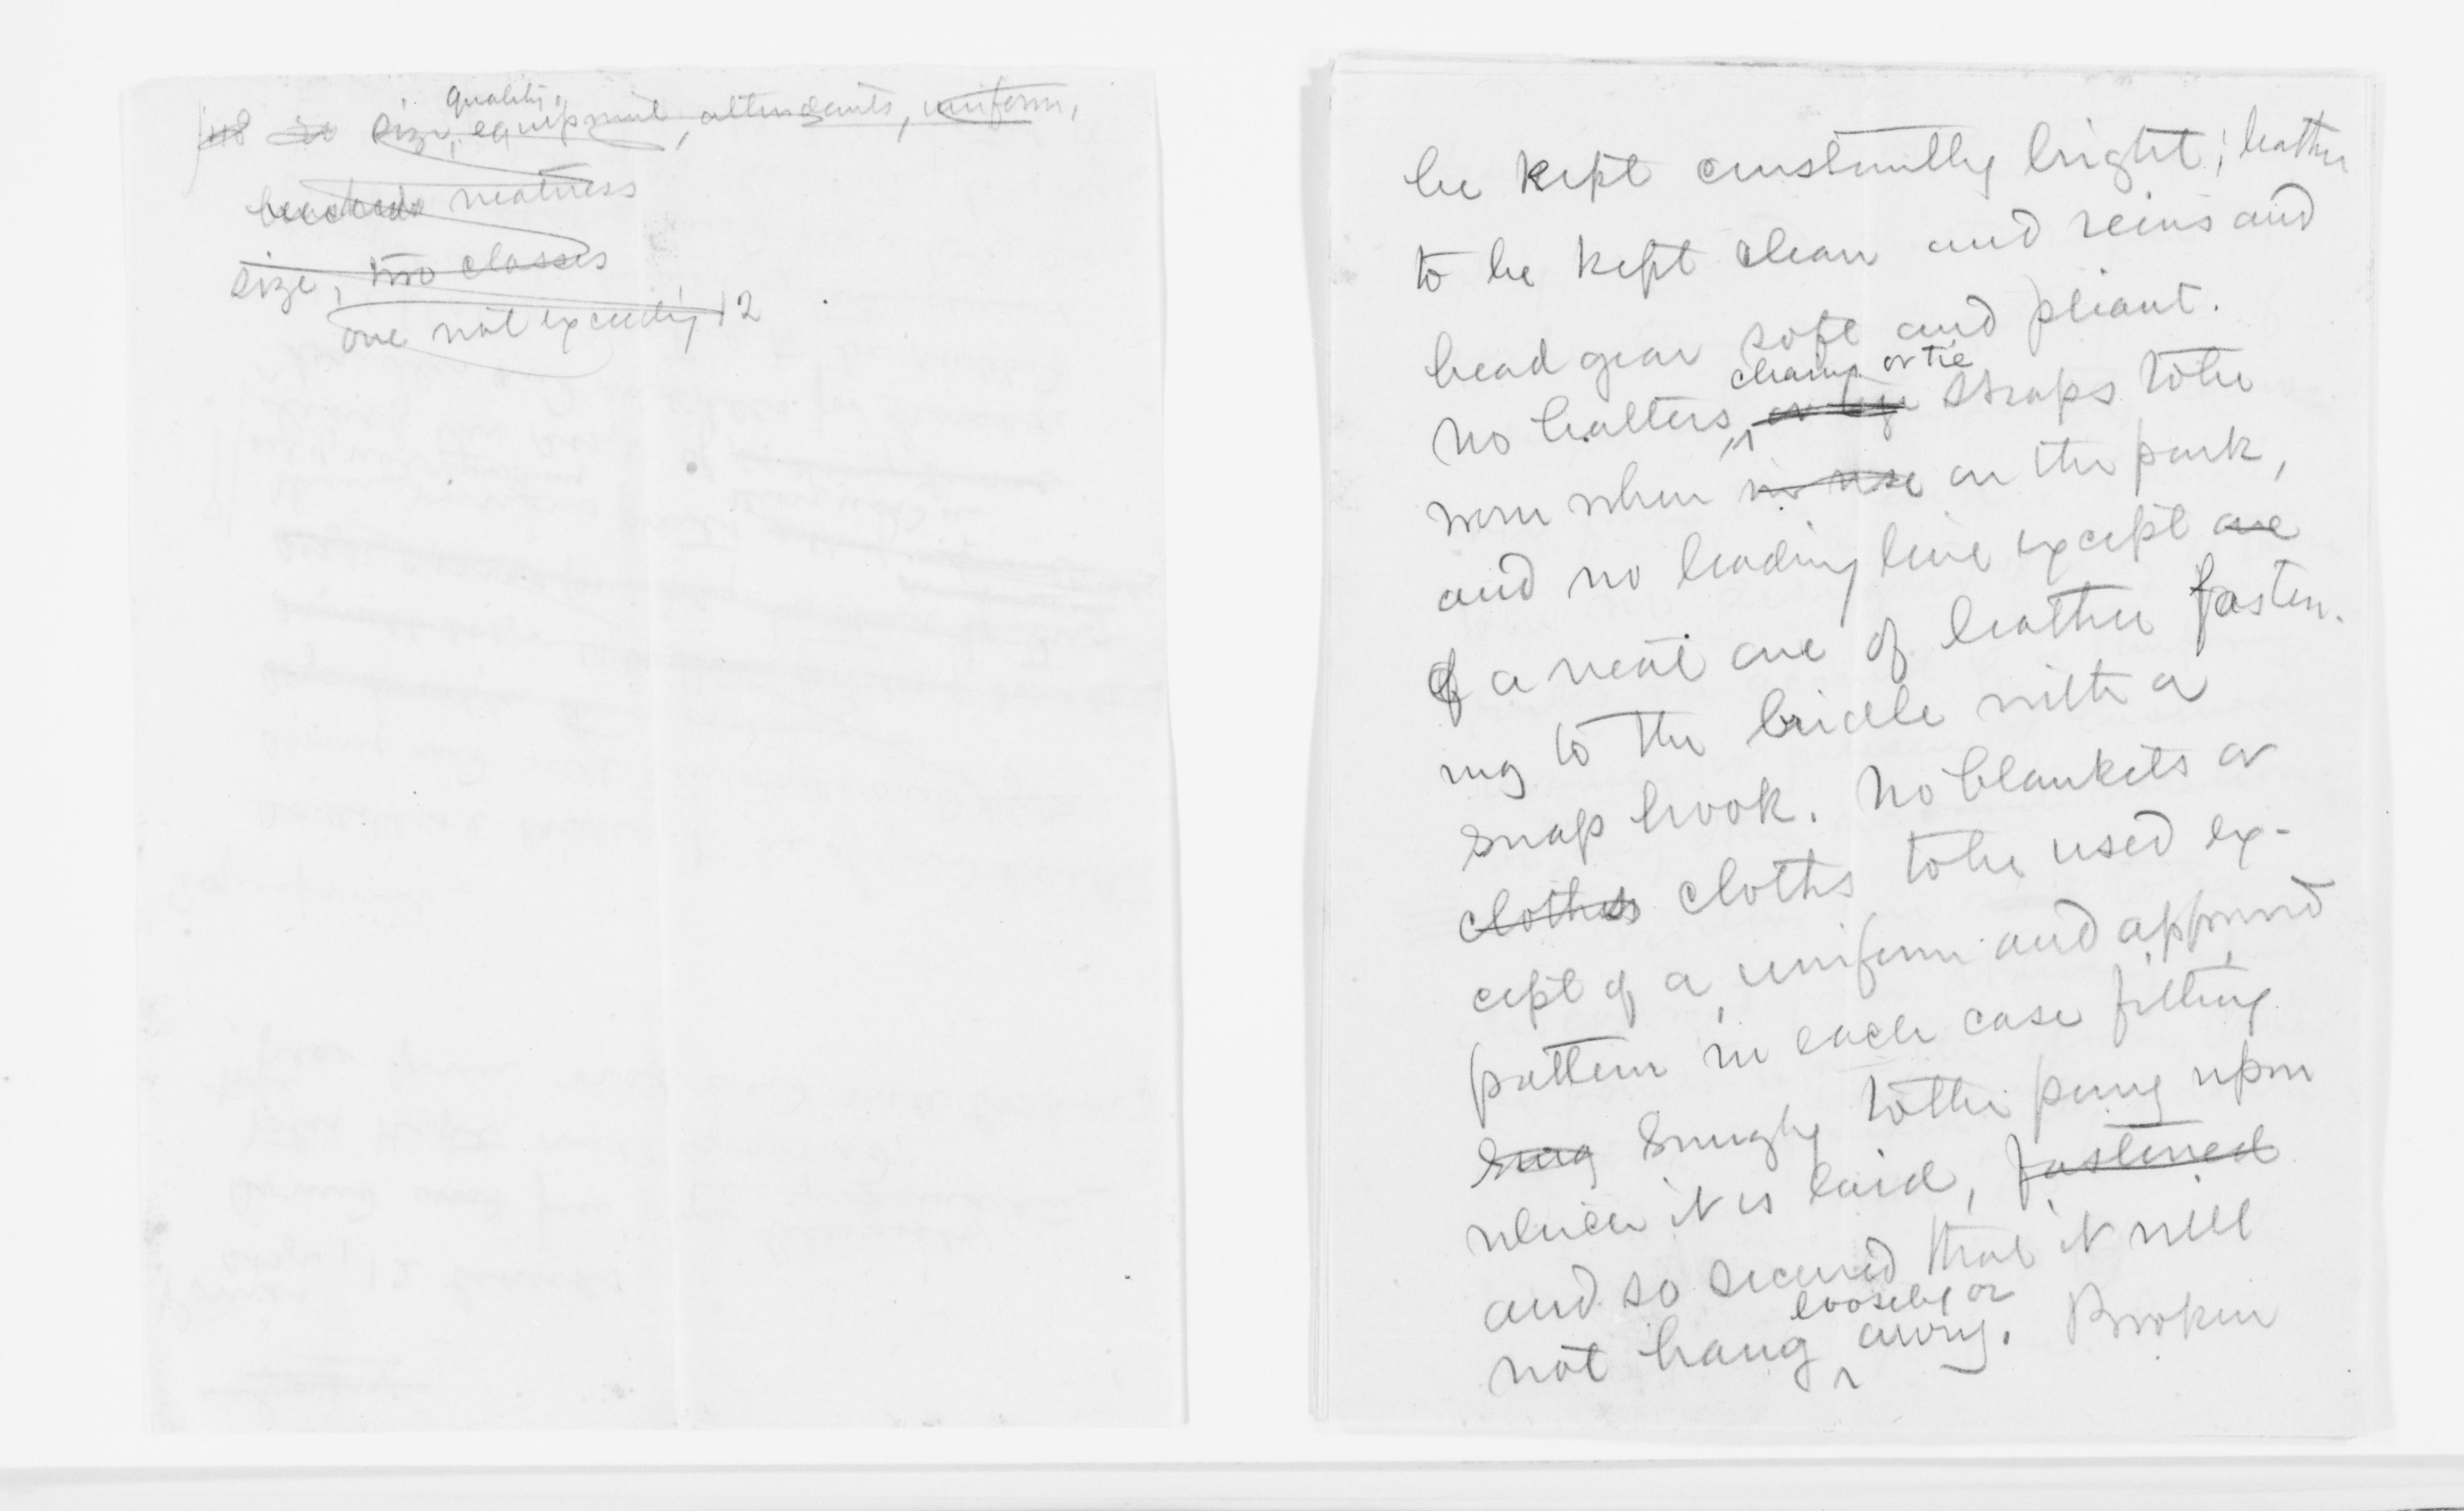 quality,
size, equipment, attendants, uniform,
neatness
size, two classes
one not exceeding 12
be kept constantly bright; leather
to be kept clean and reins and
head gear soft and pliant.
chains or tie
No halters, or tie straps to be
worn when in use on the park,
and no leading line except one
of a neat one of leather fasten-
ing to the bridle with a
snap hook. No blankets or
clothes cloths to be used ex-
cept of a uniform and approved
pattern in each case fitting
snug snugly to the pony upon
which it is laid, fastened
and so secured that it will
loosely or
not hang awry. Broken